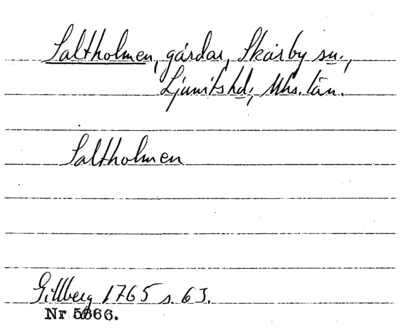 Saltholmen, gårdar, Skårby sn.,
Ljunitshd., Mhs. län.
Saltholmen
Gillberg 1765 s. 63.
Nr 5666.